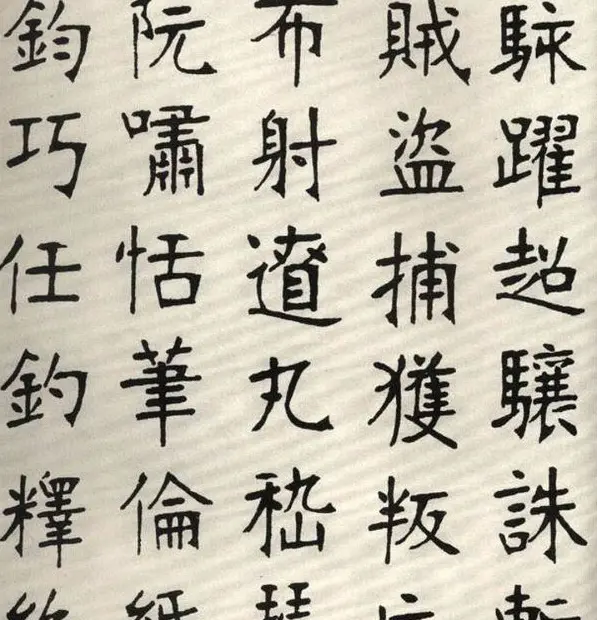 駭躍超驤誅
賊盜捕獲叛
布射遼丸嵇
阮嘯恬筆倫
鈞巧任釣釋